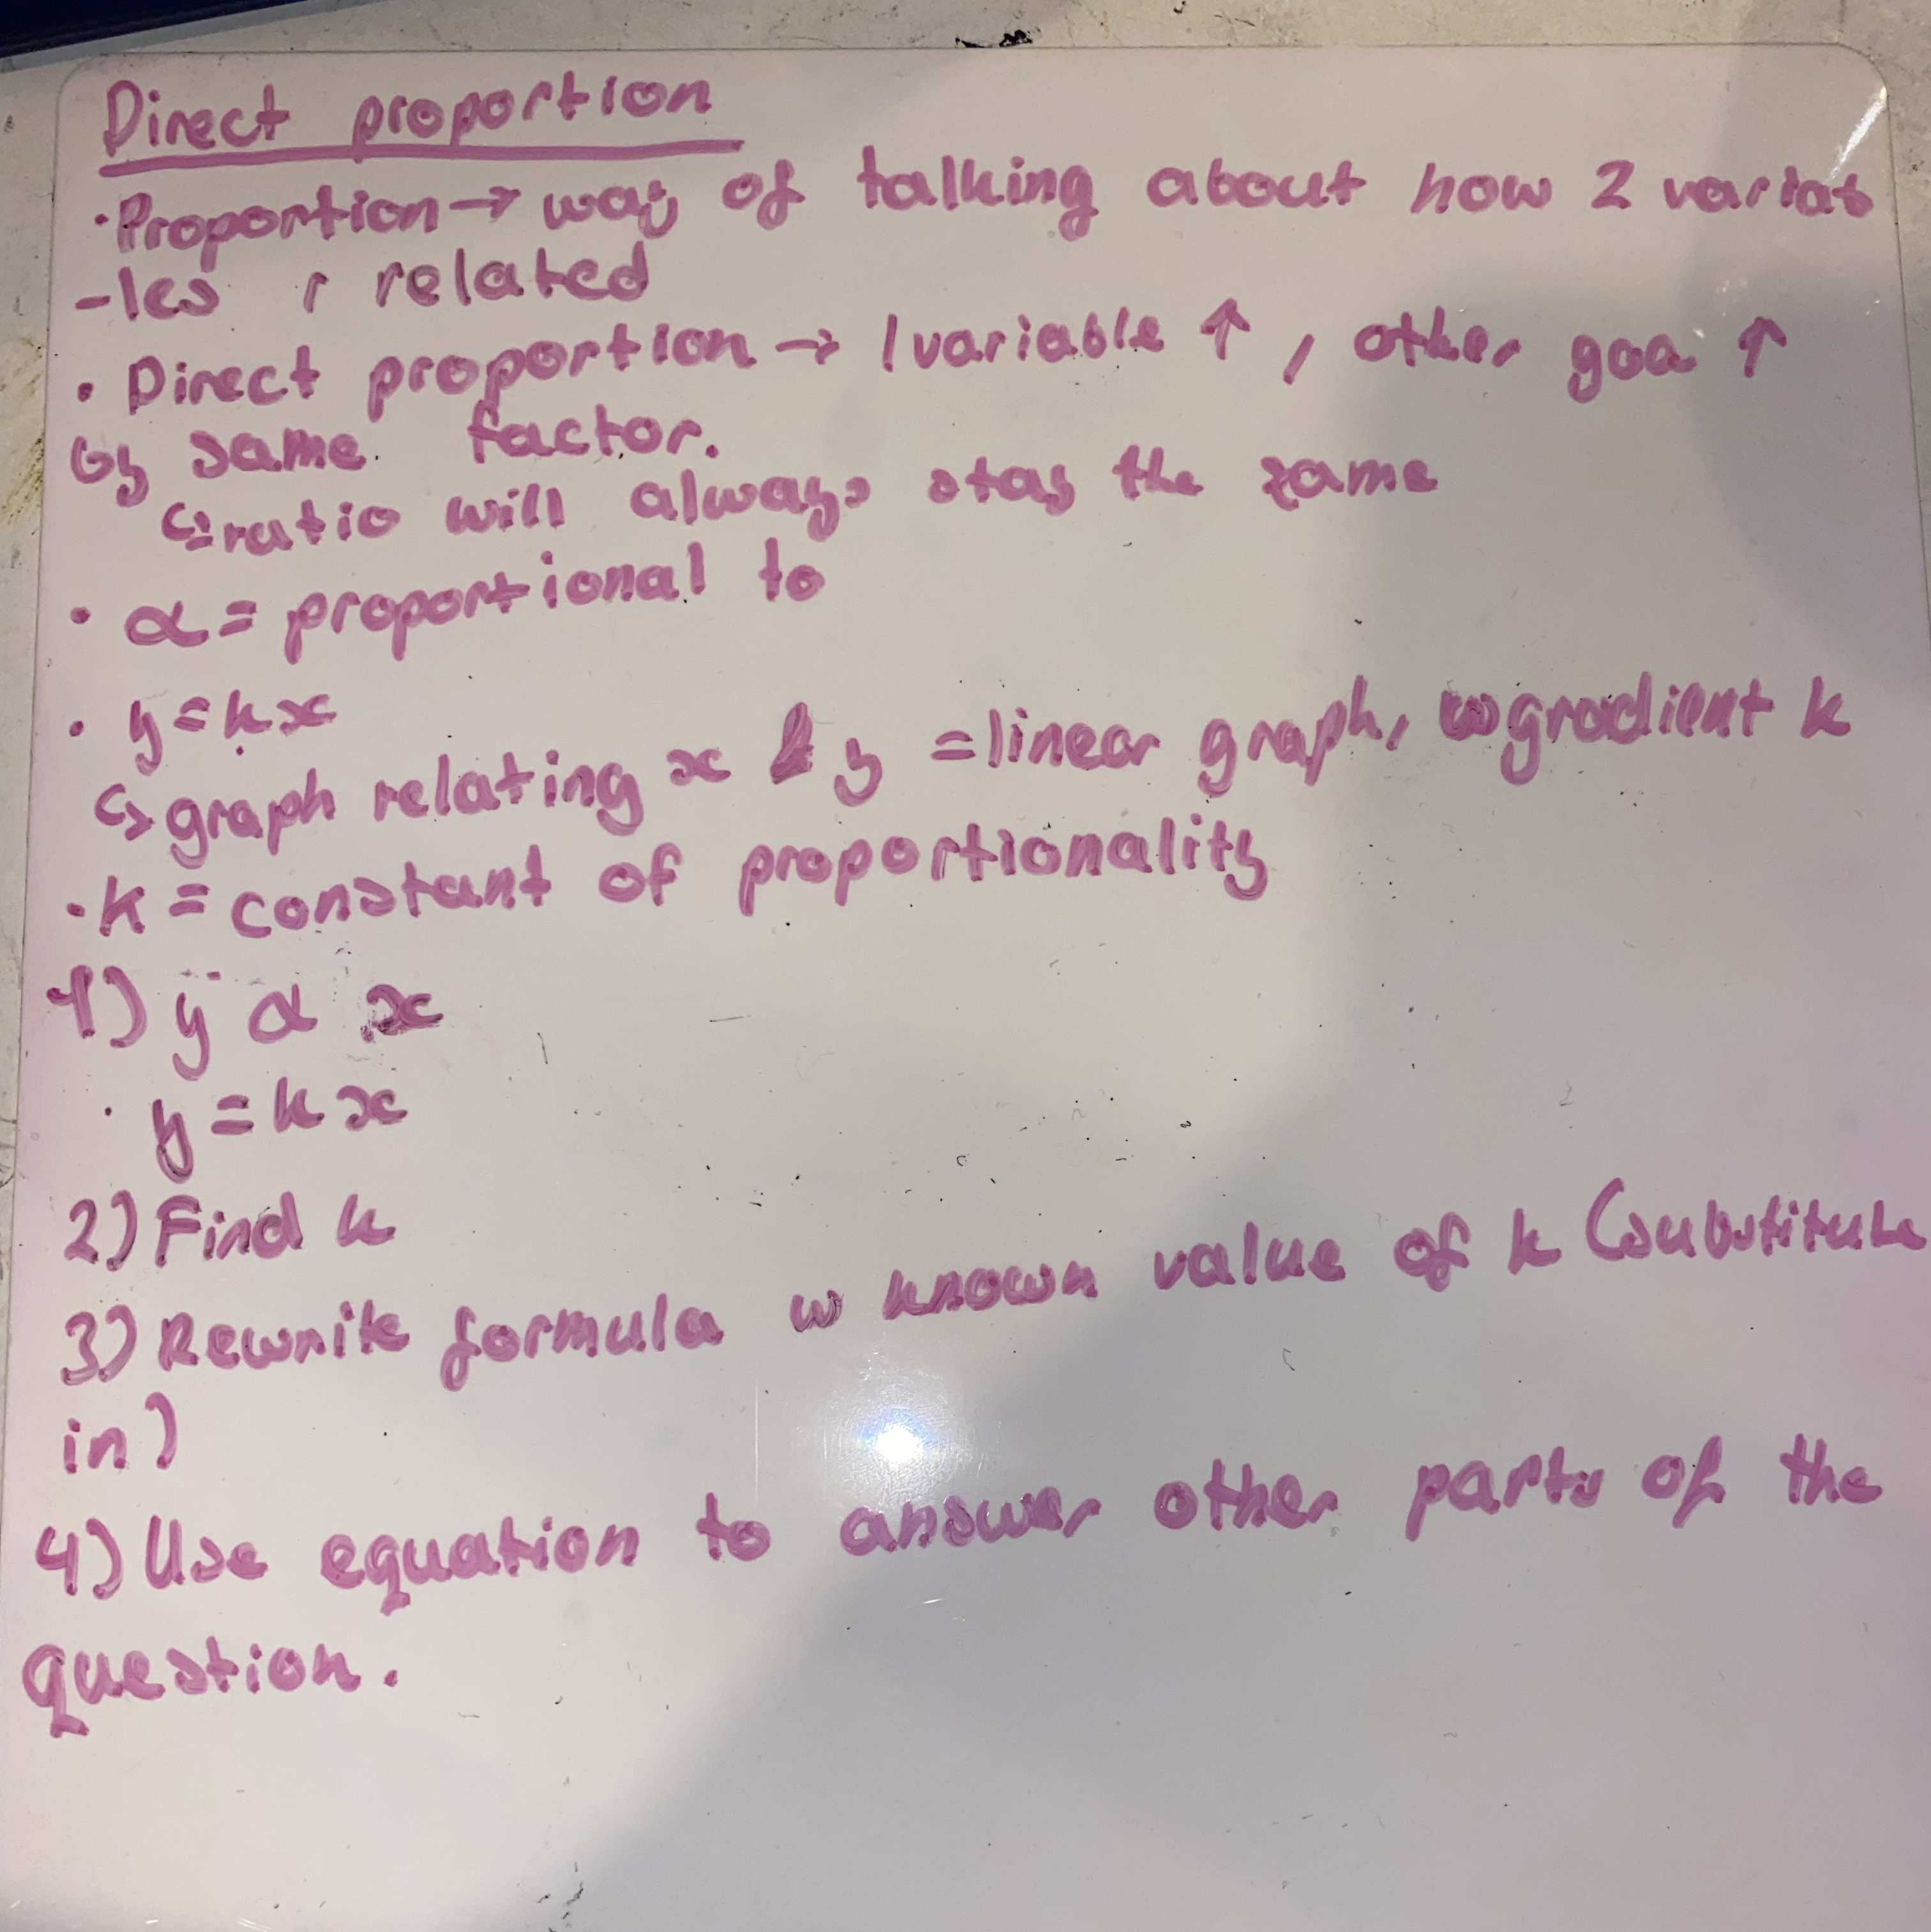 Direct proportion
• Proportion → way of talking about how 2 variab
-les r related
• Direct proportion → 1 variable ↑, other goes ↑
by same factor.
↳ ratio will always stay the same
• α = proportional to
• y = kx
↳ graph relating x & y = linear graph, w gradient k
• k = constant of proportionality
1) y α x
• y = kx
2) Find k
3) Rewrite formula w known value of k (substitute
in)
4) Use equation to answer other parts of the
question.